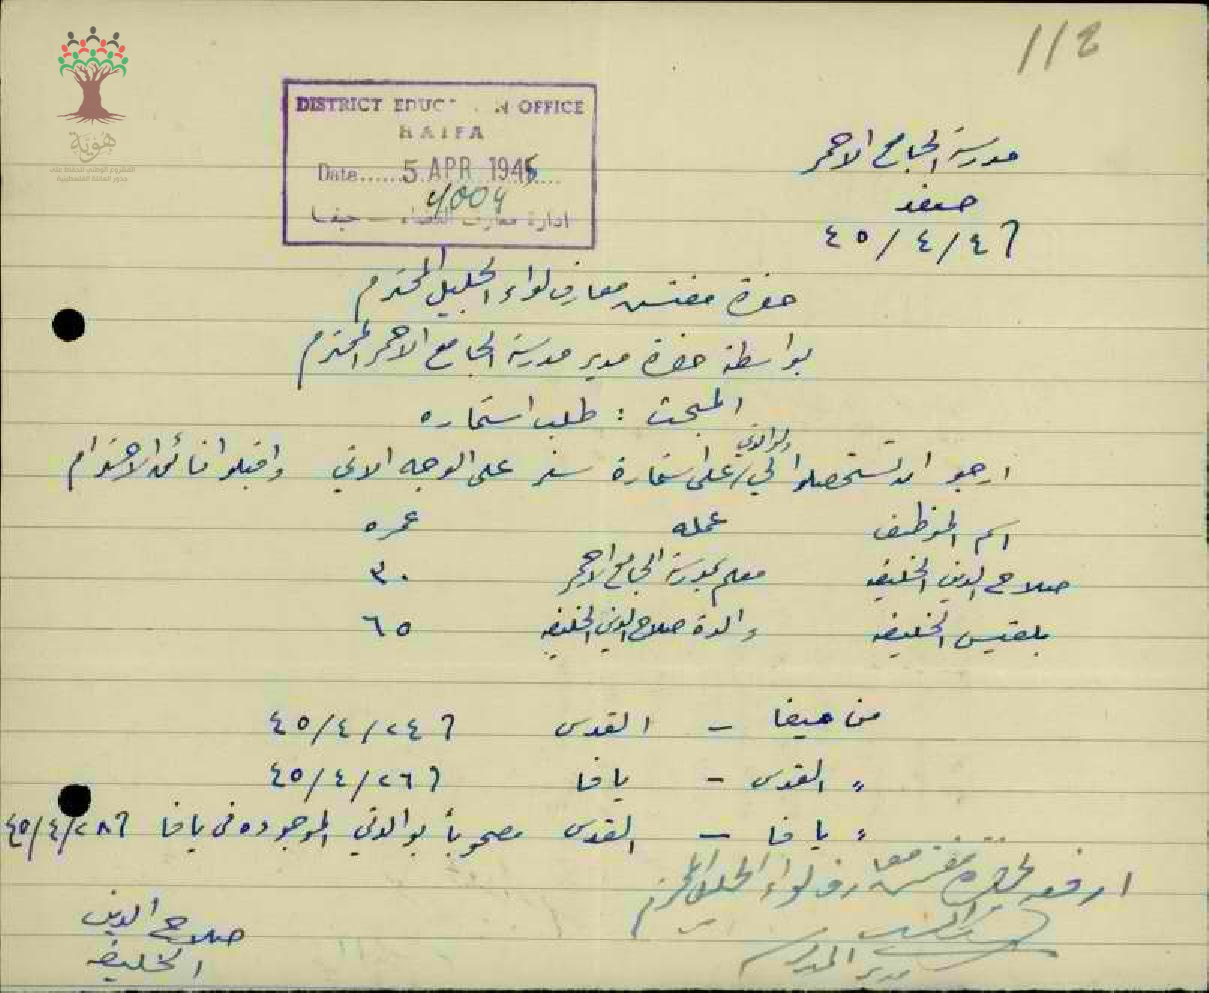 112
هوية
المشروع الوطني للحفاظ على
جذور العائلة الفلسطينية
DISTRICT EDUC N OFFICE
HAIFA
Date...... 5 APR 1945
4004
ادارة معارف القضاء — حيفا
مدرسة الجامع الاحمر
صفد
٤ / ٤ / ٤٥
حضرة مفتش معارف لواء الجليل المحترم
بواسطة حضرة مدير مدرسة الجامع الاحمر المحترم
المبحث : طلب استماره
ارجو ان تستحصلوا لي ولوالدتي على استمارة سفر على الوجه الاتي واقبلوا فائق الاحترام
اسم الموظف عمله عمره
صلاح الدين الخليفه معلم بمدرسة الجامع الاحمر ٣٠
بلقيس الخليفه والدة صلاح الدين الخليفه ٦٥
من حيفا – القدس ٢٤ / ٤ / ٤٥
" القدس – يافا ٢٦ / ٤ / ٤٥
" يافا – القدس مصحوباً بوالدتي الموجوده في يافا ٢٨ / ٤ / ٤٥
ارفعه لحضرة مفتش معارف لواء الجليل المحترم
مدير المدرسة
صلاح الدين
الخليفه